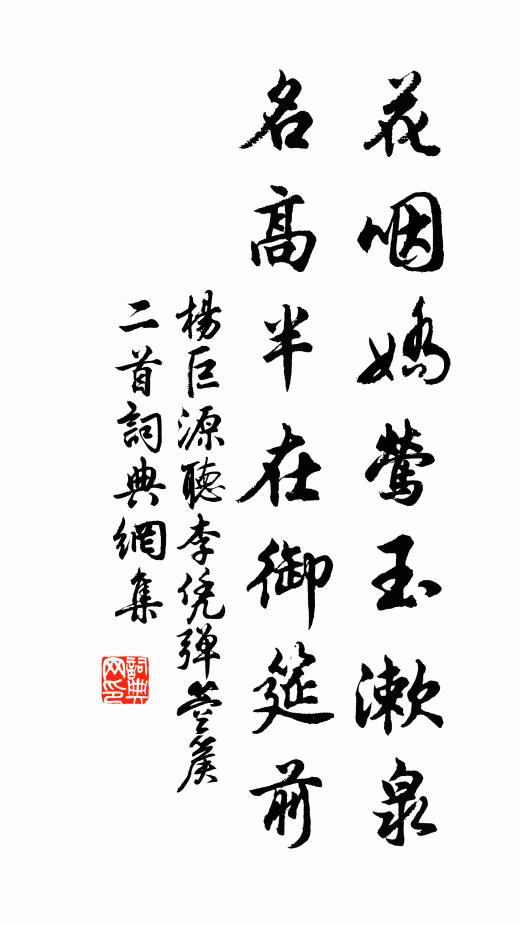 花咽嬌鶯玉漱泉
名高半在御筵前
楊巨源聽李凭彈箜篌
二首詞典網集
詞典网印